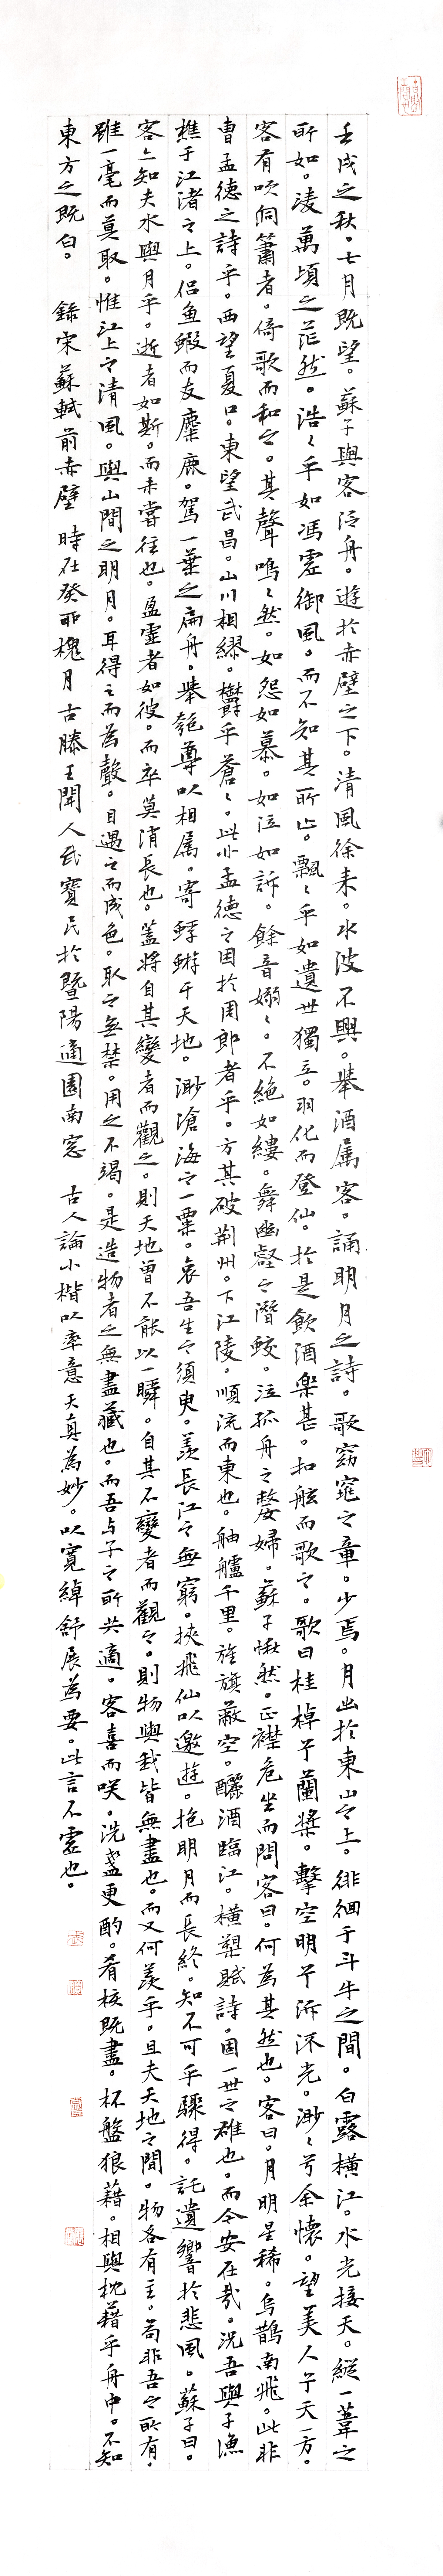 壬戌之秋。七月既望。蘇子與客泛舟。遊於赤壁之下。清風徐来。水波不興。舉酒属客。誦明月之詩。歌窈窕之章。少焉。月出於東山之上。徘徊于斗牛之間。白露橫江。水光接天。縱一葦之
所如。凌萬頃之茫然。浩〻乎如馮虛御風。而不知其所止。飄〻乎如遺世獨立。羽化而登仙。於是飲酒樂甚。扣舷而歌之。歌曰桂棹兮蘭槳。擊空明兮泝流光。渺〻兮余懷。望美人兮天一方。
客有吹洞簫者。倚歌而和之。其聲嗚〻然。如怨如慕。如泣如訴。餘音嫋〻。不絶如縷。舞幽壑之潛蛟。泣孤舟之嫠婦。蘇子愀然。正襟危坐而問客曰。何為其然也。客曰。月明星稀。烏鵲南飛。此非
曹孟德之詩乎。西望夏口。東望武昌。山川相繆。欝乎蒼〻。此非孟德之困於周郎者乎。方其破荊州。下江陵。順流而東也。舳艫千里。旌旗蔽空。釃酒臨江。橫槊賦詩。固一世之雄也。而今安在哉。況吾與子漁
樵于江渚之上。侶鱼鰕而友麋鹿。駕一葉之扁舟。舉匏尊以相属。寄蜉蝣于天地。渺滄海之一粟。哀吾生之須臾。羨長江之無窮。挾飛仙以遨遊。抱明月而長終。知不可乎驟得。託遺響於悲風。蘇子曰。
客亦知夫水與月乎。逝者如斯。而未嘗往也。盈虛者如彼。而卒莫消長也。蓋將自其變者而觀之。則天地曾不能以一瞬。自其不變者而觀之。則物與我皆無盡也。而又何羨乎。且夫天地之間。物各有主。苟非吾之所有。
雖一毫而莫取。惟江上之清風。與山間之明月。耳得之而為聲。目遇之而成色。取之無禁。用之不竭。是造物者之無盡藏也。而吾与子之所共適。客喜而咲。洗盞更酌。肴核既盡。杯盤狼藉。相與枕藉乎舟中。不知
東方之既白。 錄宋蘇軾前赤壁 時在癸卯槐月古滕王開人武寶民於暨陽適園南窓 古人論小楷以率意天真為妙。以寬綽舒展為要。此言不虛也。